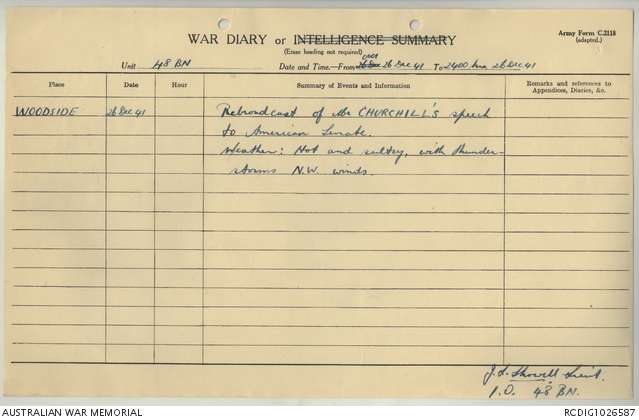 WAR DIARY or INTELLIGENCE SUMMARY
(Erase heading not required)
Army Form C.2118
(adapted.)
Unit 48 BN
Date and Time.—From 0001 26 Dec 41 To 2400 hrs 26 Dec 41
Place Date Hour Summary of Events and Information Remarks and references to
Appendices, Diaries, &c.
WOODSIDE 26 Dec 41 Rebroadcast of Mr CHURCHILL'S speech
to American Senate.
Weather: Hot and sultry, with thunder-
storms N.W. winds.
J.L. Showell Lieut.
I.O. 48 BN.
AUSTRALIAN WAR MEMORIAL
RCDIG1026587